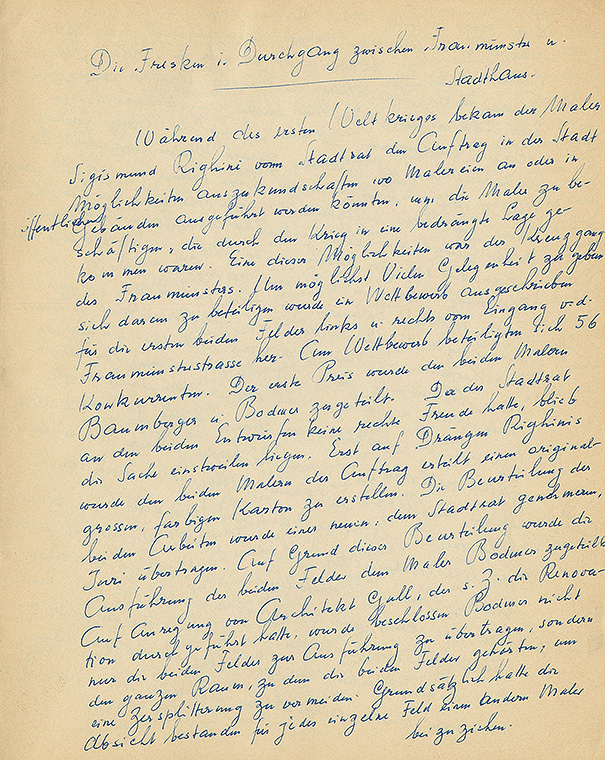 Die Fresken i. Durchgang zwischen Fraumünster u.
Stadthaus.
Während des ersten Weltkrieges bekam der Maler
Sigismund Righini vom Stadtrat den Auftrag in der Stadt
Möglichkeiten auszukundschaften wo Malereien an oder in
öffentlichen Gebäuden ausgeführt werden könnten, um die Maler zu be-
schäftigen, die durch den Krieg in eine bedrängte Lage ge-
kommen waren. Eine dieser Möglichkeiten war der Kreuzgang
des Fraumünsters. Um möglichst Vielen Gelegenheit zu geben
sich daran zu beteiligen wurde ein Wettbewerb ausgeschrieben
für die ersten beiden Felder links u. rechts vom Eingang v. d.
Fraumünsterstrasse her. Am Wettbewerb beteiligten sich 56
Konkurrenten. Der erste Preis wurde den beiden Malern
Baumberger u. Bodmer zugeteilt. Da der Stadtrat
an den beiden Entwürfen keine rechte Freude hatte, blieb
die Sache einstweilen liegen. Erst auf Drängen Righinis
wurde den beiden Malern der Auftrag erteilt einen original-
grossen, farbigen Karton zu erstellen. Die Beurteilung der
beiden Arbeiten wurde einer neuen, dem Stadtrat genehmeren,
Juri übertragen. Auf Grund dieser Beurteilung wurde die
Ausführung der beiden Felder dem Maler Bodmer zugeteilt.
Auf Anregung von Architekt Gull, der s. Z. die Renova-
tion durchgeführt hatte, wurde beschlossen Bodmer nicht
nur die beiden Felder zur Ausführung zu übertragen, sondern
den ganzen Raum, zu dem die beiden Felder gehörten, um
eine Zersplitterung zu vermeiden. Grundsätzlich hatte die
Absicht bestanden für jedes einzelne Feld einen andern Maler
beizuziehen.